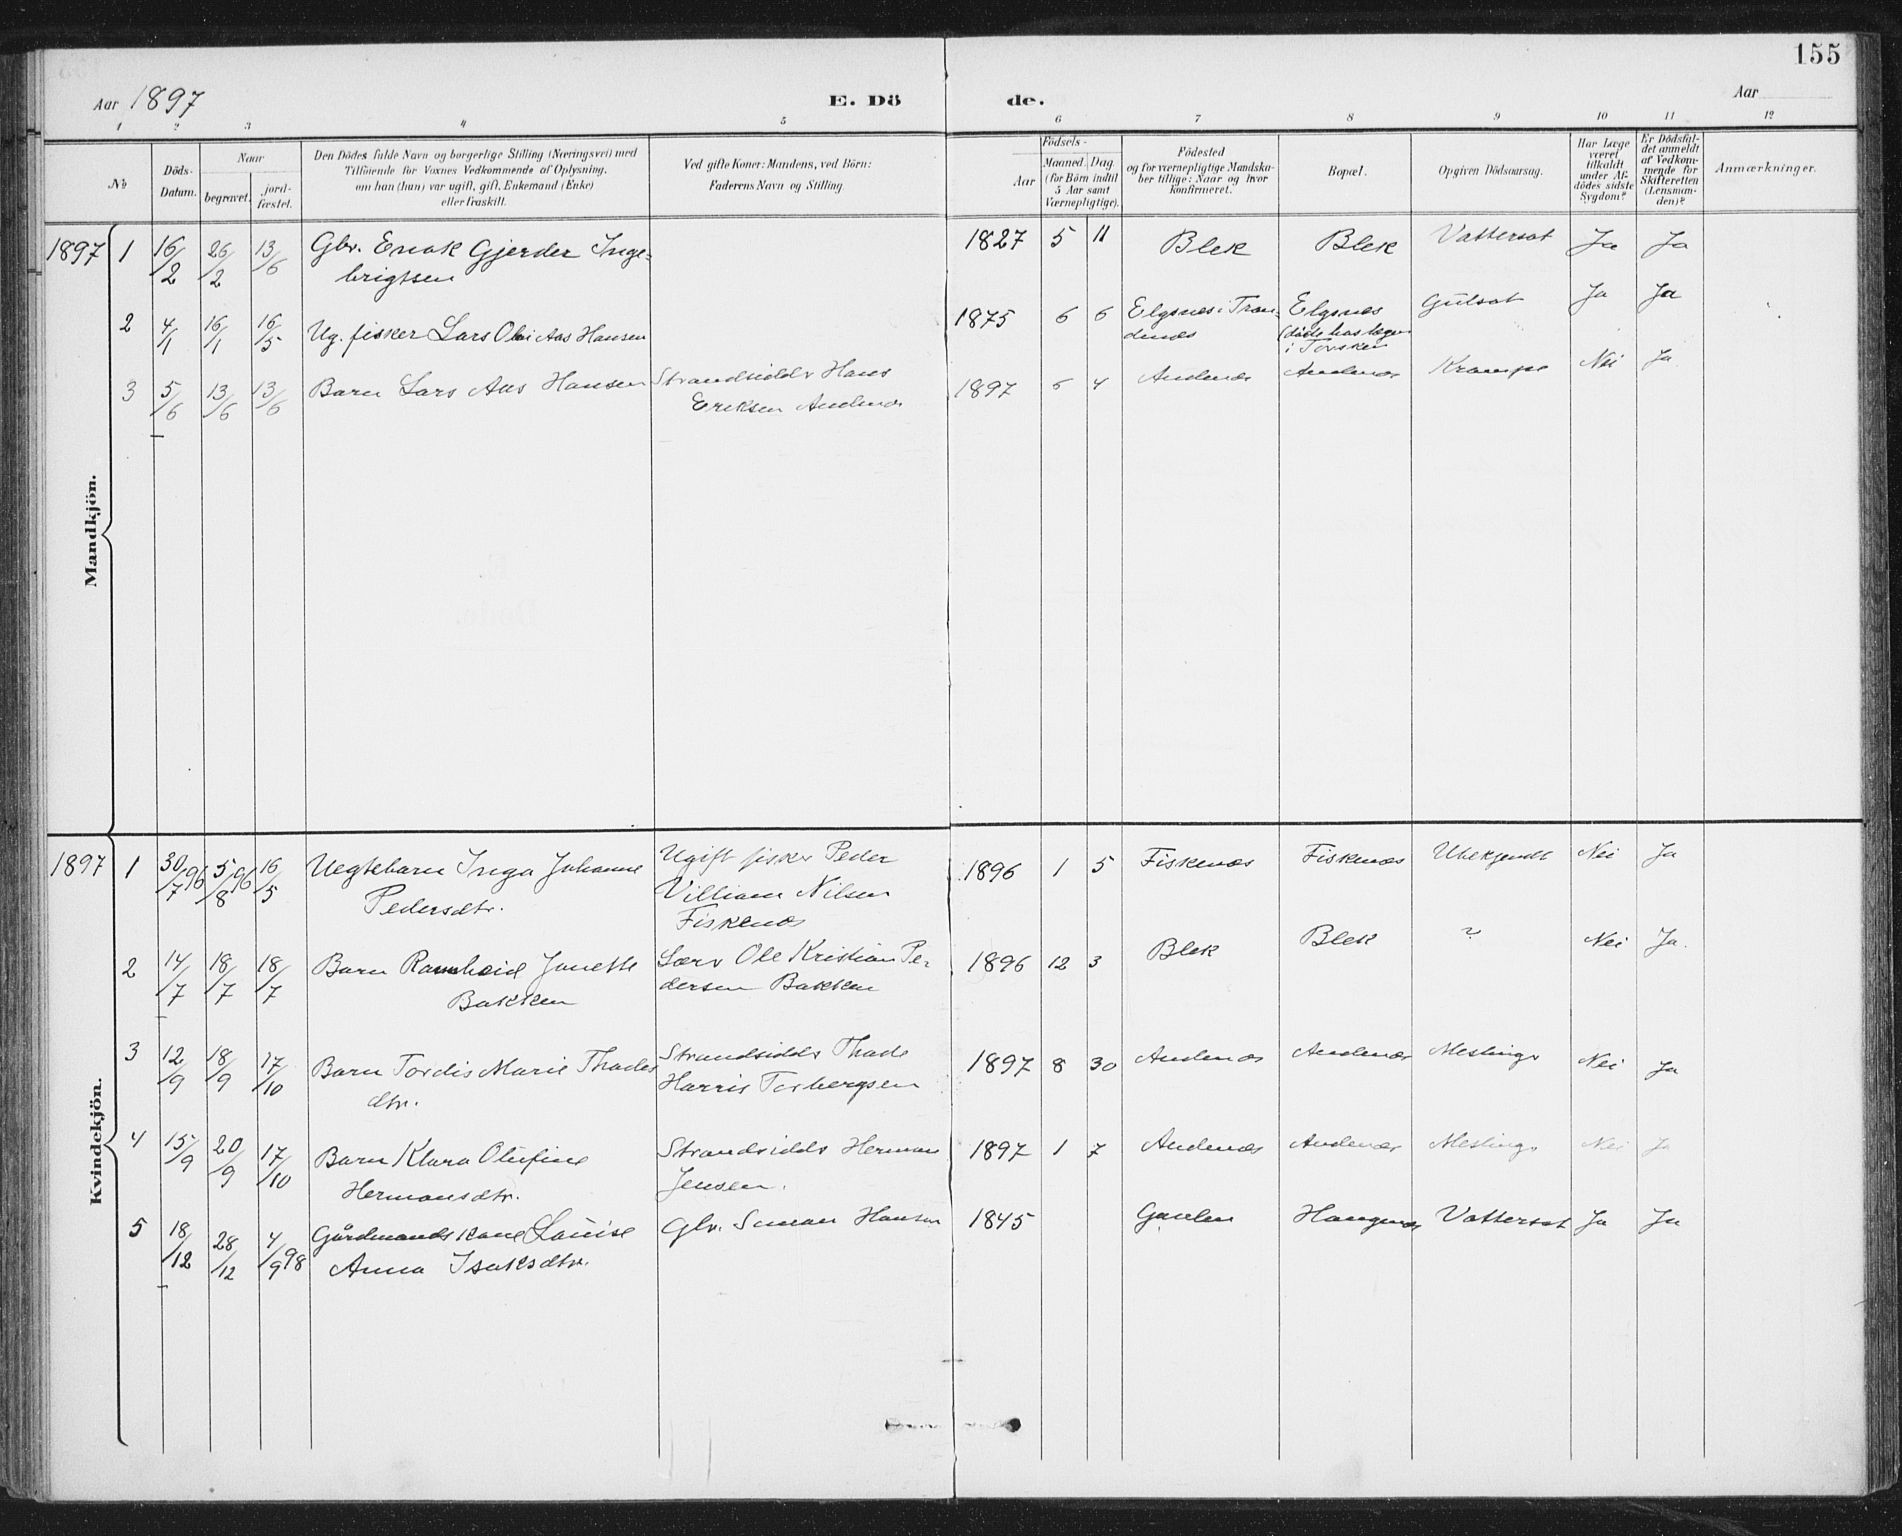 155
Aar 1897
E. Dö de.
Aar
1 2 3 4 5 6 7 8 9 10 11 12
№
Döds-
Datum.
Naar
begravet.
jord-
fæstet.
Den Dödes fulde Navn og borgerlige Stilling (Næringsvei) med
Tilföiende for Voxnes Vedkommende af Oplysning,
om han (hun) var ugift, gift, Enkemand (Enke)
eller fraskilt.
Ved gifte Koner: Mandens, ved Börn:
Faderens Navn og Stilling.
Födsels-
Aar
Maaned. Dag.
(for Börn indtil
5 Aar samt
Værnepligtige).
Födested
og for værnepligtige Mandska-
ber tillige: Naar og hvor
konfirmeret.
Bopæl.
Opgiven Dödsaarsag.
Har Læge
været
tilkaldt
under Af-
dödes sidste
Sygdom?
Er Dödsfal-
det anmeldt
af Vedkom-
mende for
Skifteretten
(Lensman-
den)?
Anmærkninger.
Mandkjön.
1897 1 16/2 26/2 13/6 Gbr. Enok Gjerder Inge-
brigtsen
1827 5 11 Blek Blek Vattersot Ja Ja
2 4/1 16/1 16/5 Ug. fisker Lars Olai Aas Hansen
1875 6 6 Elgsnes i Tron-
denæs
Elgsnes
(döde hos lægen
i Torsken
Gulsot Ja Ja
3 5/6 13/6 13/6 Barn Lars Aas Hansen Strandsidder Hans
Eriksen Andenæs
1897 6 4 Andenæs Andenæs Krampe Nei Ja
Kvindekjön.
1897 1 30/7 96 5/8 96 16/5 Uegtebarn Inga Johanne
Pedersdtr.
Ugift fisker Peder
Villiam Nilsen
Fiskenæs
1896 1 5 Fiskenæs Fiskenæs Ubekjendt Nei Ja
2 14/7 18/7 18/7 Barn Ranheid Janette
Bakken
Lærer Ole Kristian Pe-
dersen Bakken
1896 12 3 Blek Blek ? Nei Ja.
3 12/9 18/9 17/10 Barn Tordis Marie Thades
dtr.
Strandsidder Thade
Harris Torbergsen
1897 8 30 Andenæs Andenæs Meslinger Nei Ja
4 15/9 20/9 17/10 Barn Klara Olufine
Hermansdtr.
Strandsidder Herman
Jensen.
1897 1 7 Andenæs Andenæs Meslinger Nei Ja
5 18/12 28/12 4/9 98 Gårdmands kone Louise
Anna Isaksdtr.
Gbr. Simon Hansen
1845 Vattersot Ja Ja